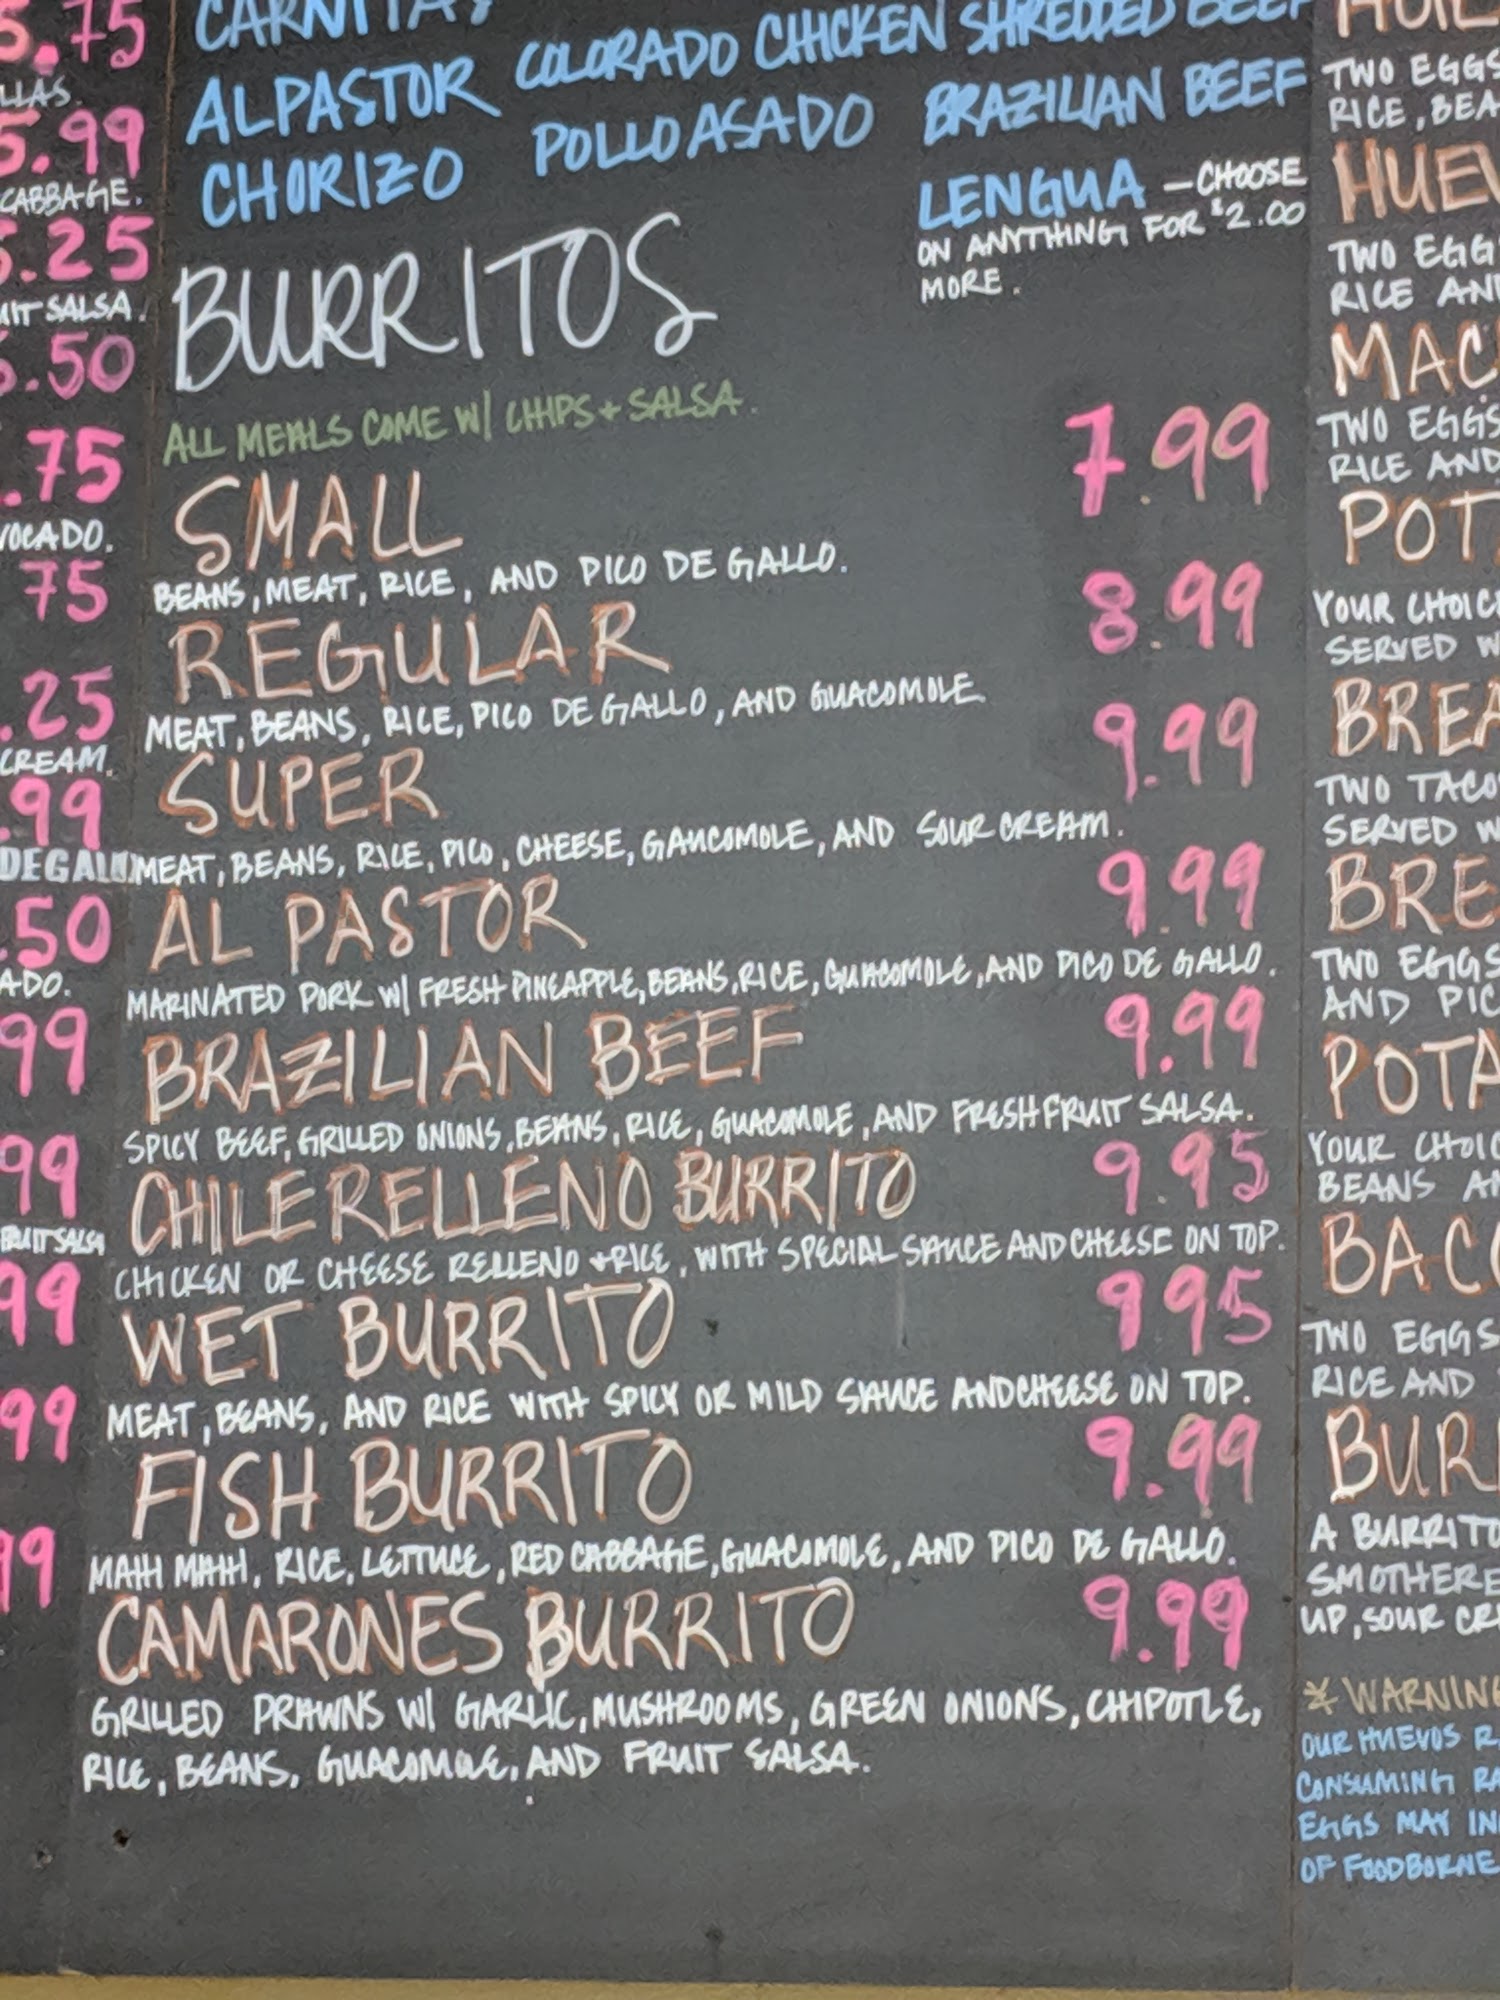 5.75
LLAS.
5.99
CABBAGE.
5.25
UIT SALSA.
5.50
.75
VOCADO.
75
.25
CREAM.
.99
DE GALLO
.50
ADO.
99
99
FRUIT SALSA
99
99
99
CARNITAS
ALPASTOR
CHORIZO
COLORADO CHICKEN
POLLO ASADO
SHREDDED BEEF
BRAZILIAN BEEF
LENGUA - CHOOSE
ON ANYTHING FOR $2.00
MORE.
BURRITOS
ALL MEALS COME W/ CHIPS + SALSA.
SMALL 7.99
BEANS, MEAT, RICE, AND PICO DE GALLO.
REGULAR 8.99
MEAT, BEANS, RICE, PICO DE GALLO, AND GUACOMOLE
SUPER 9.99
MEAT, BEANS, RICE, PICO, CHEESE, GAUCOMOLE, AND SOUR CREAM.
AL PASTOR 9.99
MARINATED PORK W/ FRESH PINEAPPLE, BEANS, RICE, GUACOMOLE, AND PICO DE GALLO.
BRAZILIAN BEEF 9.99
SPICY BEEF, GRILLED ONIONS, BEANS, RICE, GUACOMOLE, AND FRESH FRUIT SALSA.
CHILE RELLENO BURRITO 9.95
CHICKEN OR CHEESE RELLENO + RICE, WITH SPECIAL SAUCE AND CHEESE ON TOP.
WET BURRITO 9 95
MEAT, BEANS, AND RICE WITH SPICY OR MILD SAUCE AND CHEESE ON TOP.
FISH BURRITO 9.99
MAHI MAHI, RICE, LETTUCE, RED CABBAGE, GUACOMOLE, AND PICO DE GALLO.
CAMARONES BURRITO 9.99
GRILLED PRAWNS W/ GARLIC, MUSHROOMS, GREEN ONIONS, CHIPOTLE,
RICE, BEANS, GUACOMOLE, AND FRUIT SALSA.
TWO EGGS
RICE, BEA
HUEV
TWO EGG
RICE AN
MAC
TWO EGGS
RICE AND
POT
YOUR CHOIC
SERVED W
BREA
TWO TACO
SERVED W
BRE
TWO EGGS
AND PIC
POTA
YOUR CHOIC
BEANS A
BACO
TWO EGGS
RICE AND
BUR
A BURRITO
SMOTHERE
UP, SOUR CR
* WARNING
OUR HUEVOS R
CONSUMING RA
EGGS MAY IN
OF FOODBORNE